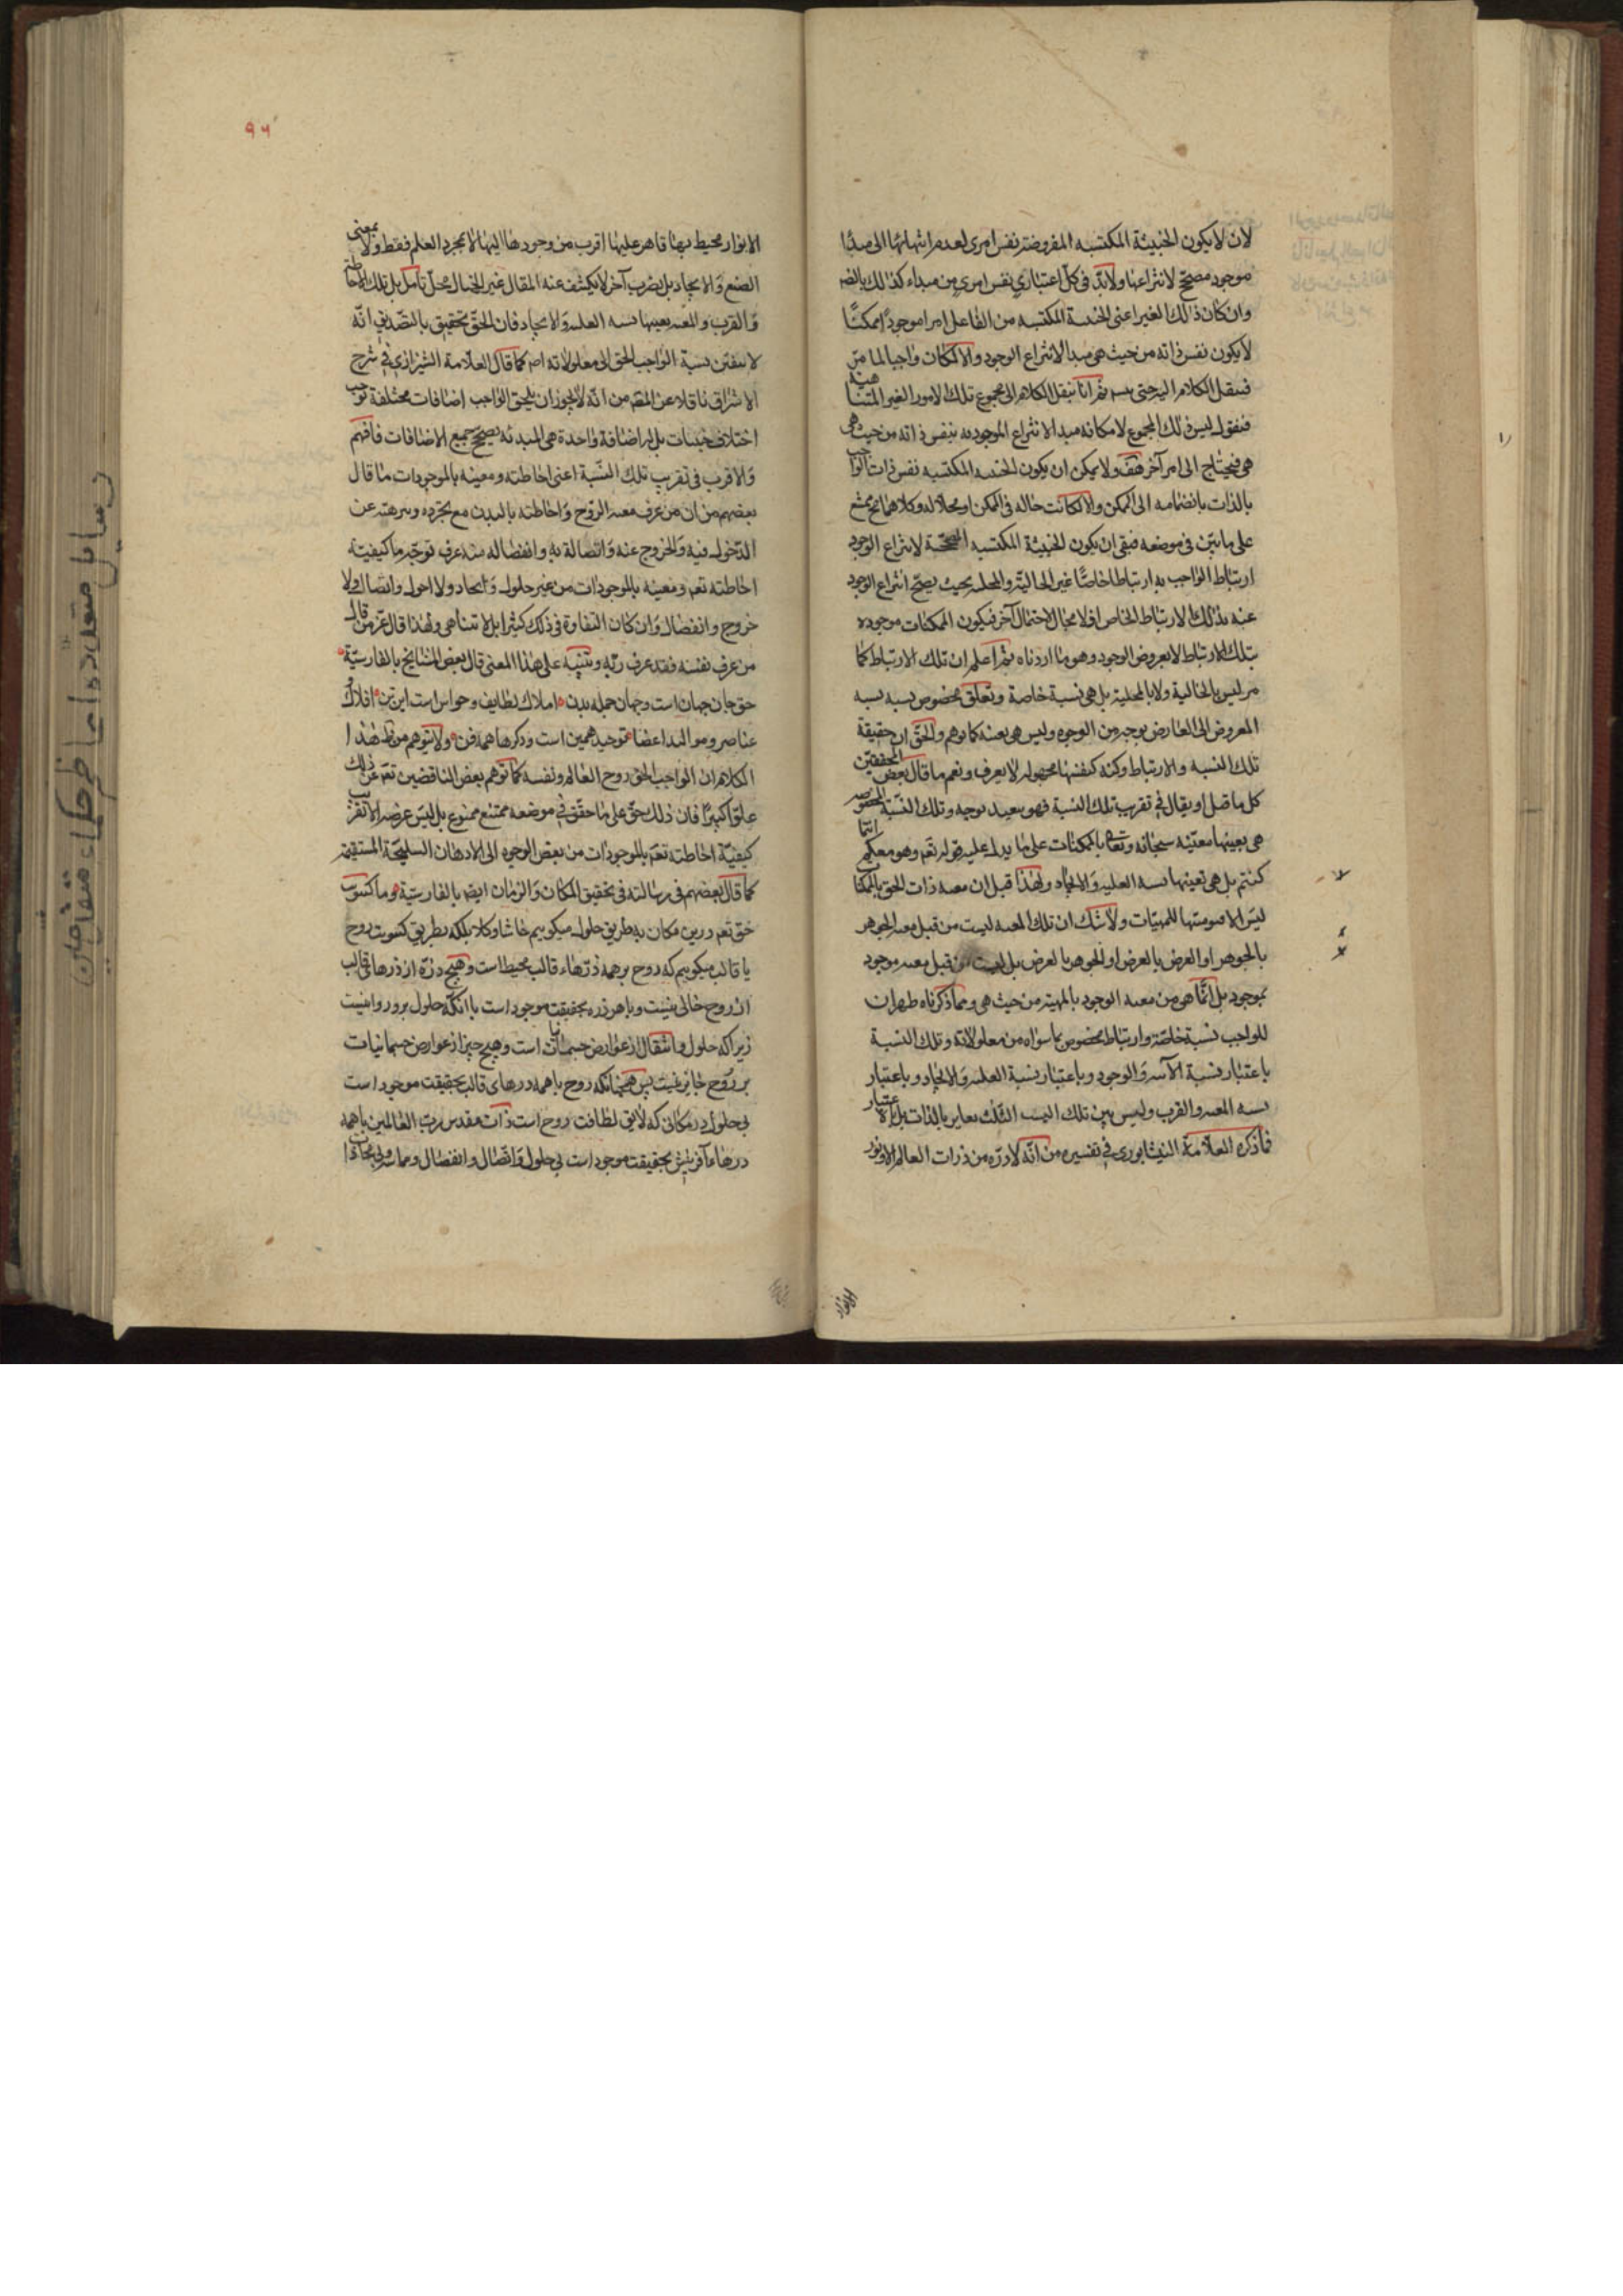 لان لا يكون الحيثية المكتسبه المفروضه نفس امرى لعدم انتهائها الى مبدا
موجود مصحح لانتزاعها ولابد فى كل اعتبارى نفس امرى من مبداء كذالك بالضه
وان كان ذالك الغير اعنى الحيثية المكتسبه من الفاعل امرا موجودا ممكنا
لا يكون نفس ذاته من حيث هى مبدا لانتزاع الوجود والا لكان واجبا لما مر
فينقل الكلام اليه حتى ثم انا ننقل الكلام الى مجموع تلك الامور الغير المتناهية
فنقول ليس ذلك المجموع لامكانه مبدا لانتزاع الموجوديه بنفس ذاته من حيث هى
هى فيحتاج الى امر آخر هف ولا يمكن ان يكون الحيثيه المكتسبه نفس ذات الواجب
بالذات بانضمامه الى الممكن والا لكانت حاله فى الممكن او محلا له وكلاهما ممتنع
على ما بين فى موضعه فبقى ان يكون الحيثية المكتسبه المصححة لانتزاع الوجود
ارتباط الواجب به ارتباطا خاصا غير الحالية والمحليه بحيث يصحح انتزاع الوجود
عنه بذلك الارتباط الخاص اذ لا مجال لاحتمال آخر فيكون الممكنات موجوده
بتلك الارتباط لا بعروض الوجود وهو ما اردناه ثم اعلم ان تلك الارتباط كما
مر ليس بالحالية ولا بالمحلية بل هى نسبة خاصة وتعلق مخصوص يشبه نسبه
المعروض الى العارض بوجه من الوجوه وليس هى بعينه كما توهم والحق ان حقيقة
تلك النسبه والارتباط وكنه كيفيتها مجهوله لا يعرف ونعم ما قال بعض المحققين
كل ما قيل او يقال فى تقريب تلك النسبة فهو بعيد بوجه وتلك النسبة المخصوصه
هى بعينها معيته سبحانه وتعالى بالممكنات على ما يدل عليه قوله تعم وهو معكم اينما
كنتم بل هى بعينها نسبه العلية والايجاد ولهذا قيل ان معيه ذات الحق بالممكنات
ليس الا قيوميتها للمهيات ولا شك ان تلك المعيه ليست من قبيل معيه الجوهر
بالجوهر او العرض بالعرض او الجوهر بالعرض بل ليست من قبيل معيه موجود
بموجود بل انما هو من معيه الوجود بالمهية من حيث هى ومما ذكرناه ظهر ان
للواجب نسبة خاصة وارتباط مخصوص بما سواه من معلولاته وتلك النسبة
باعتبار نسبة الآسه والوجود وباعتبار نسبة العليه والايجاد وباعتبار
نسبه المعيه والقرب وليس بين تلك النسب الثلث تغاير بالذات بل بالاعتبار
فما ذكره العلامة النيشابورى فى تفسيره من انه لا ذره من ذرات العالم الا ونور
الانوار
٩٦
الانوار محيط بها قاهر عليها اقرب من وجودها اليها لا بمجرد العلم فقط ولا بمعنى
الصنع والايجاد بل بضرب آخر لا يكشف عنه المقال غير الخيال محل تامل بل تلك الاحاطة
والقرب والمعيه بعينها نسبه العليه والايجاد فان الحق تحقيق بالتصديق انه
لا يتفنن نسبة الواجب الحق الى معلولاته اصم كما قال العلامة الشيرازى فى شرح
الاشراق ناقلا عن المصم من انه لا يجوز ان يلحق الواجب اضافات مختلفة توجب
اختلاف حيثيات بل له اضافة واحدة هى المبدئه يصحح جميع الاضافات فافهم
والاقرب فى تقريب تلك النسبة اعنى احاطته ومعيته بالموجودات ما قال
بعضهم من ان من عرف معيه الروح واحاطته بالبدن مع تجرده وتنزهه عن
الدخول فيه والخروج عنه واتصاله به وانفصاله عنه عرف بوجه ما كيفية
احاطته تعم ومعيته بالموجودات من غير حلول واتحاد ولا دخول واتصال ولا
خروج وانفصال وان كان التفاوة فى ذلك كثيرا بل لا تتناهى ولهذا قال عز من قال
من عرف نفسه فقد عرف ربه وتنبيه على هذا المعنى قال بعض المشايخ بالفارسية
حق جان جهان است وجهان جمله بدن املاك لطايف وحواس است اين تن افلاك
عناصر ومواليد اعضا توحيد همين است ودكرها همه فن ولا تتوهم من هذا
الكلام ان الواجب الحق روح العالم ونفسه كما توهم بعض الناقصين تعم عن ذلك
علوا كبيرا فان ذلك حق على ما حقق فى موضعه ممتنع ممنوع بل ليس غرضه الا تقريب
كيفية احاطته تعم بالموجودات من بعض الوجوه الى الاذهان السليمة المستقيمه
كما قال بعضهم فى رسالته فى تحقيق المكان والزمان ايضا بالفارسية وما كسوت
حق تعم درين مكان به طريق حلول ميكوييم حاشا وكلا بلكه بطريق كسوت روح
با قالب ميكوييم كه روح بر همه ذرهاء قالب محيط است وهيچ ذره از ذرهاى قالب
از روح خالى نيست وبا هر ذره بحقيقت موجود است با آنكه حلول برو روا نيست
زيرا كه حلول وانتقال از عوارض جسمانيات است وهيچ چيز از عوارض جسمانيات
بر روح جايز نيست پس همچنانكه روح با همه درهاى قالب بحقيقت موجود است
بى حلول در مكانى كه لايق لطافت روح است ذات مقدس رب العالمين با همه
درهاء آفرينش بحقيقت موجود است بى حلول واتصال وانفصال ومماسه وبى محاذا
رسايل متعدده از حكماء متفاوتين